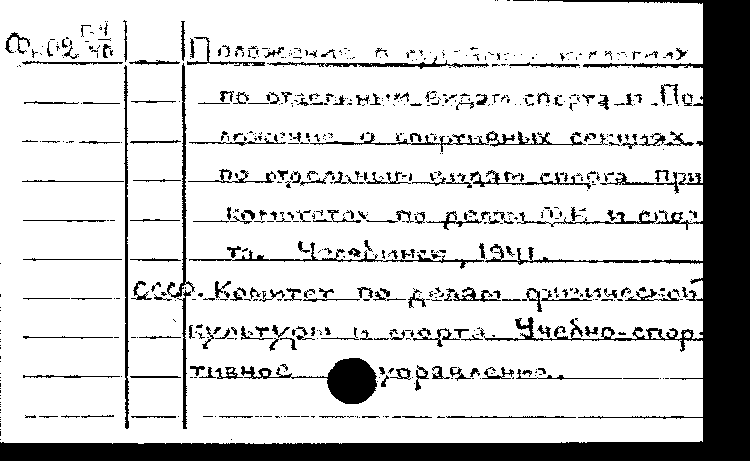 Положение о судейских коллегиях
по отдельным видам спорта и По-
ложение о спортивных секциях
по отдельным видам спорта при
комитетах по делам ФК и спор-
та. Челябинск, 1941.
СССР. Комитет по делам физической
культуры и спорта. Учебно-спор-
тивное управление.